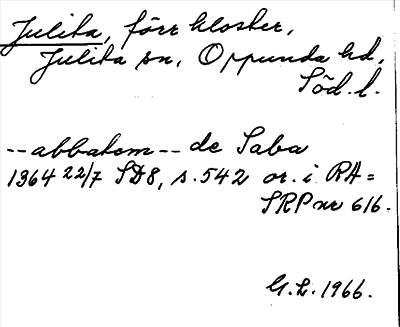 Julita, förr kloster,
Julita sn, Oppunda hd,
Söd. l.
--abbatem-- de Saba
1364 22/7 SD8, s. 542 or. i RA =
SRP nr 616.
G.L. 1966.